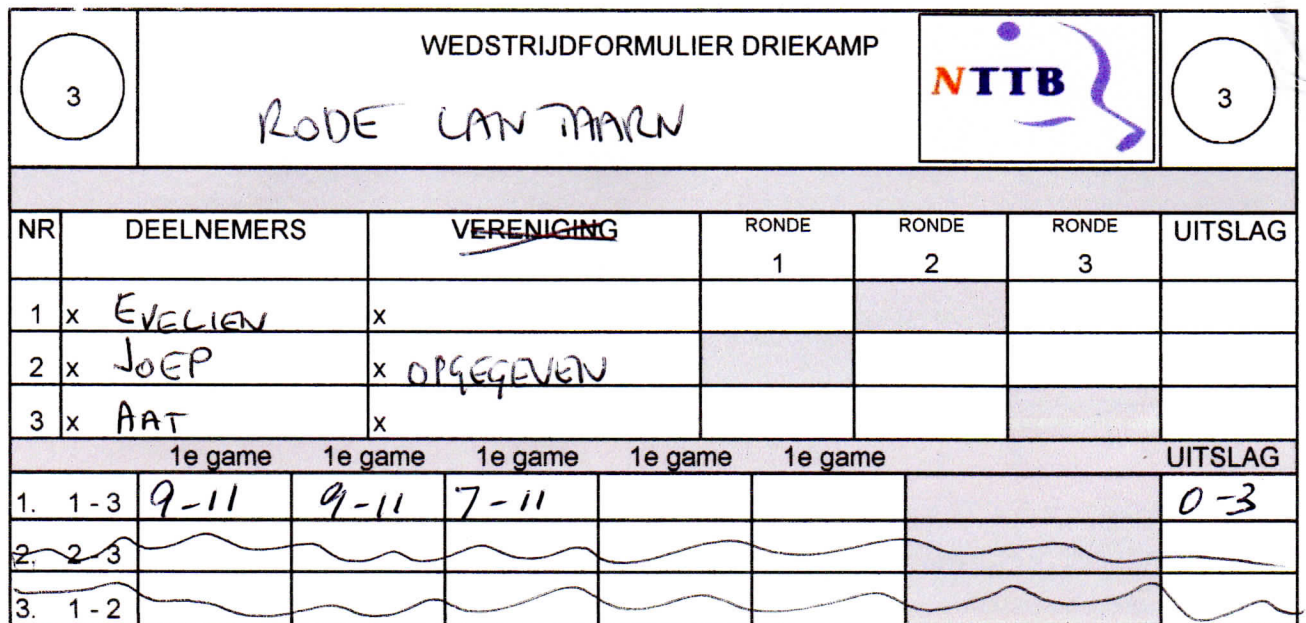 3 WEDSTRIJDFORMULIER DRIEKAMP NTTB 3
RODE LANTAARN
NR DEELNEMERS VERENIGING RONDE 1 RONDE 2 RONDE 3 UITSLAG
1 x EVELIEN x
2 x JOEP x OPGEGEVEN
3 x AAT x
1e game 1e game 1e game 1e game 1e game UITSLAG
1. 1 - 3 9-11 9-11 7-11 0-3
2. 2 - 3
3. 1 - 2